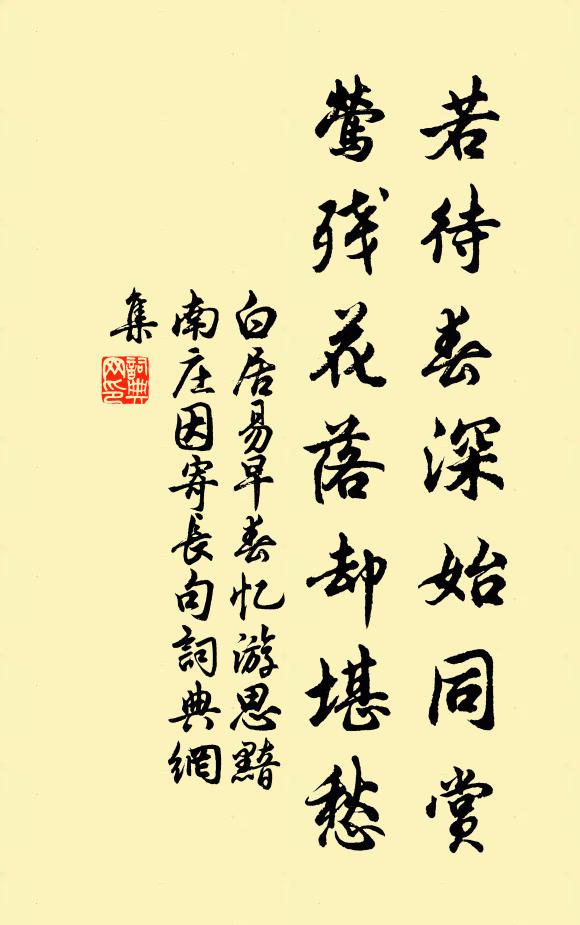 若待春深始同赏
莺残花落却堪愁
白居易早春忆游思黯
南庄因寄長句詞典網
集
詞典
网印